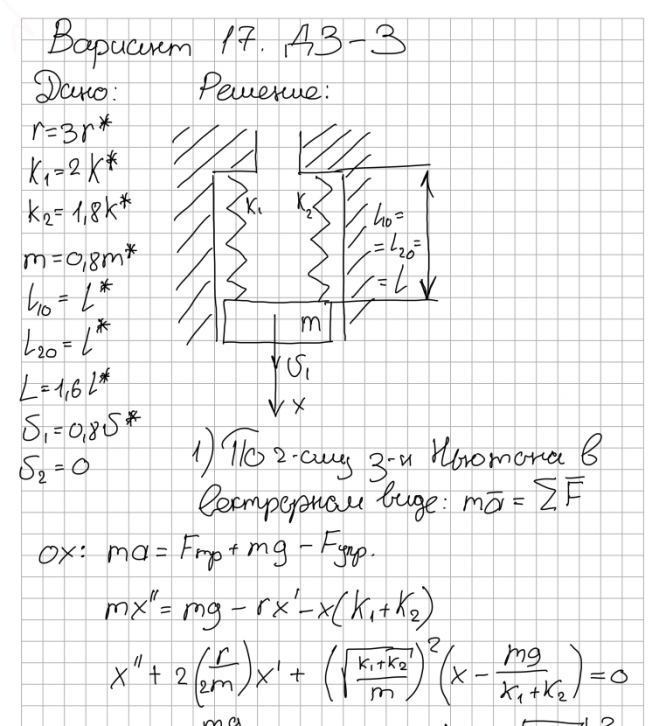 Вариант 17. ДЗ-3
Дано: Решение:
r=3r*
K₁=2K*
k₂=1,8k*
m=0,8m*
L₁₀=L*
L₂₀=L*
L=1,6L*
S₁=0,8S*
S₂=0
K₁
K₂
L₁₀=
=L₂₀=
=L
m
x
1) По 2-ому з-н Ньютона в
векторном виде: mā=ΣF̄
ox: ma=Fтр+mg-Fупр.
mx''=mg-rx'-x(K₁+K₂)
x''+2(r/2m)x'+(√((K₁+K₂)/m))²(x-mg/(K₁+K₂))=0
mg